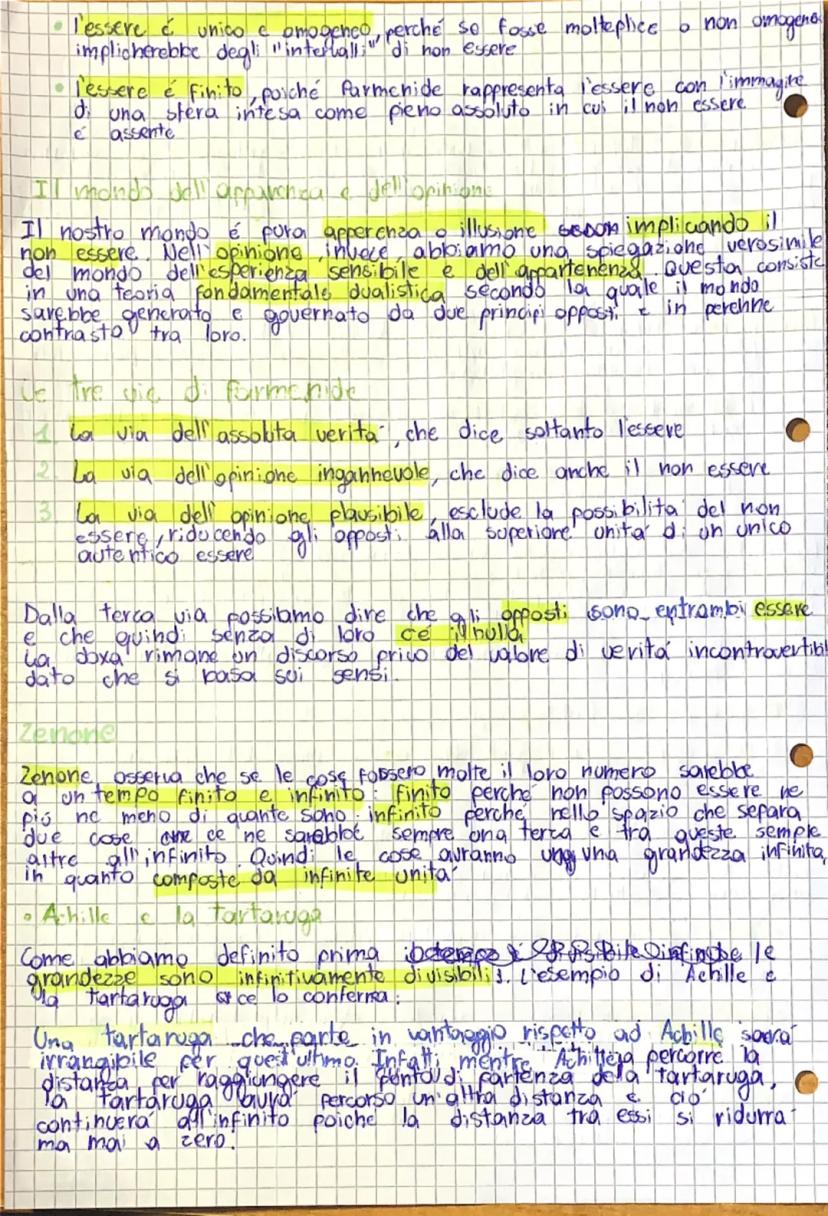 • l'essere é unico e omogeneo, perché se fosse molteplice o non omogeneo
implicherebbe degli "intervalli" di non essere
• l'essere é finito, poiché Parmenide rappresenta l'essere con l'immagine
di una sfera intesa come pieno assoluto in cui il non essere
é assente
Il mondo dell'apparenza e dell'opinione
Il nostro mondo é pura apperenza o illusione implicando il
non essere. Nell'opinione, invece, abbiamo una spiegazione verosimile
del mondo dell'esperienza sensibile e dell'appartenenza. Questa consiste
in una teoria fondamentale dualistica secondo la quale il mondo
sarebbe generato e governato da due principi opposti e in perenne
contrasto tra loro.
Le tre vie di Parmenide
1. La via dell'assoluta veritá, che dice soltanto l'essere
2. La via dell'opinione ingannevole, che dice anche il non essere
3. La via dell'opinione plausibile, esclude la possibilitá del non
essere, riducendo gli opposti alla superiore unitá di un unico
autentico essere
Dalla terza via possiamo dire che gli opposti sono entrambi essere
e che quindi senza di loro ce il nulla
La doxa rimane un discorso privo del valore di veritá incontrovertibil
dato che si basa sui sensi.
Zenone
Zenone osserva che se le cose fossero molte il loro numero sarebbe
a un tempo finito e infinito: finito perché non possono essere ne
piú ne meno di quante sono; infinito perché nello spazio che separa
due cose ce ne sarebbe sempre una terza e tra queste sempre
altre all'infinito. Quindi le cose avranno una grandezza infinita,
in quanto composte da infinite unitá
• Achille e la tartaruga
Come abbiamo definito prima le
grandezze sono infinitivamente divisibili. L'esempio di Achille e
la tartaruga ce lo conferma:
Una tartaruga che parte in vantaggio rispetto ad Achille sará
irrangibile per quest'ultimo. Infatti, mentre Achille percorre la
distanza per raggiungere il punto di partenza della tartaruga,
la tartaruga avrá percorso un'altra distanza e ció
continuerá all'infinito poiche la distanza tra essi si ridurrá
ma mai a zero.